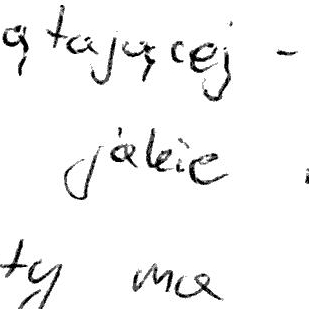 ątającej -
jakie
ty ma